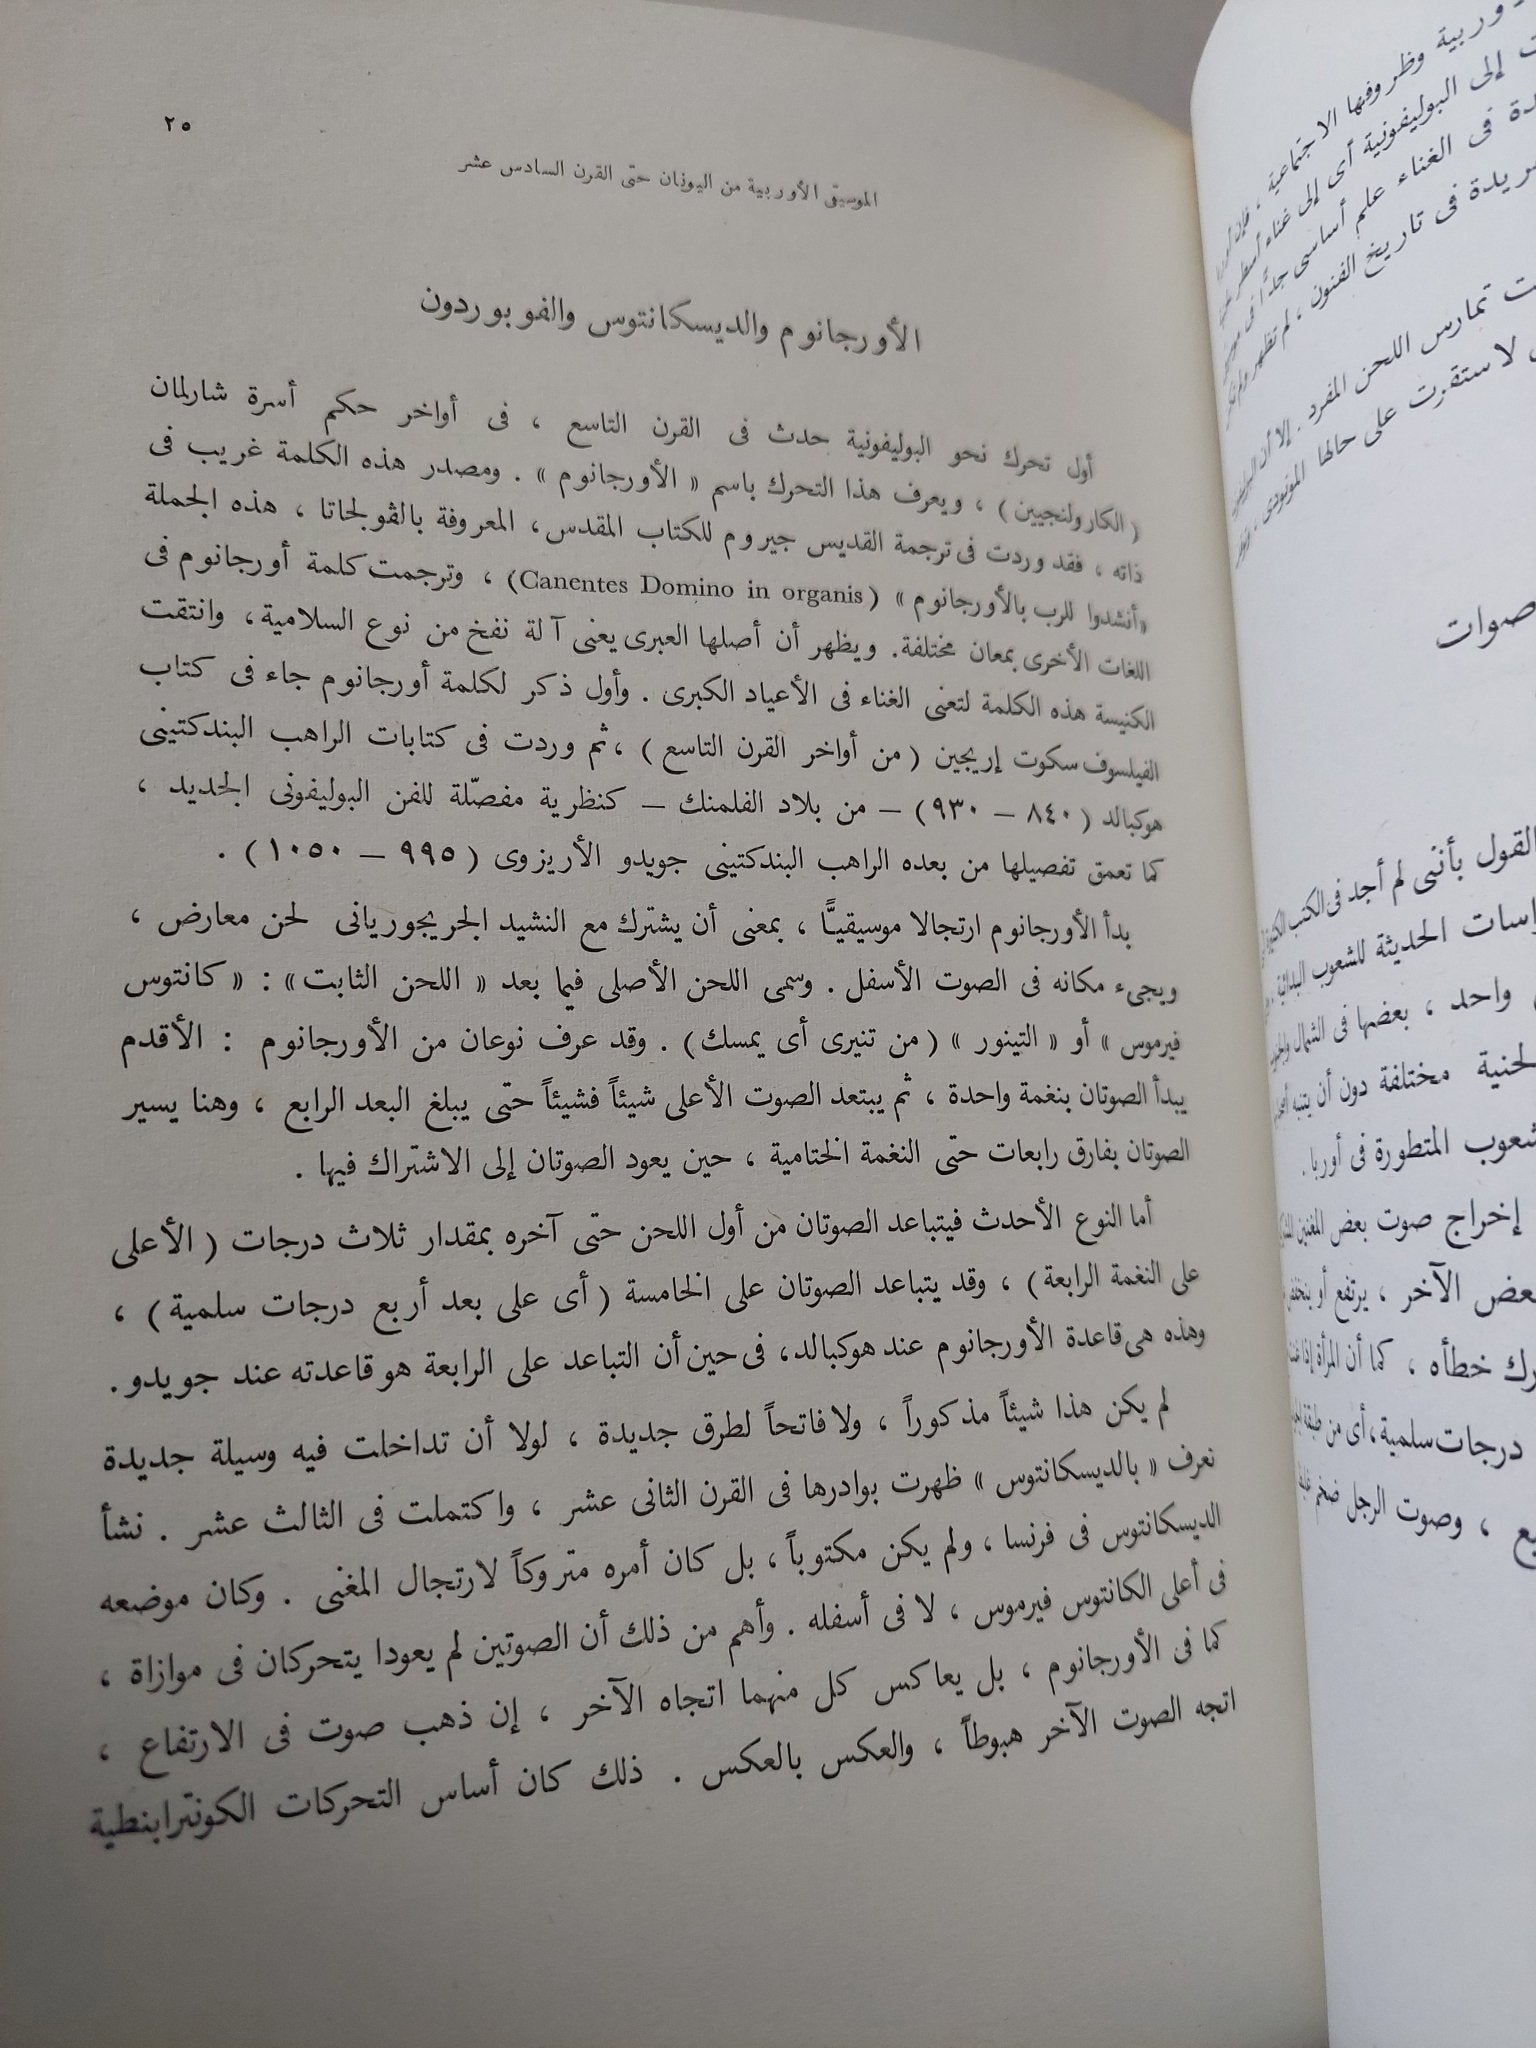 ٢٥
الموسيقى الأوربية من اليونان حتى القرن السادس عشر
الأورجانوم والديسكانتوس والفوبوردون
أول تحرك نحو البوليفونية حدث فى القرن التاسع ، فى أواخر حكم أسرة شارلمان
( الكارولنجيين ) ، ويعرف هذا التحرك باسم « الأورجانوم » . ومصدر هذه الكلمة غريب فى
ذاته ، فقد وردت فى ترجمة القديس جيروم للكتاب المقدس، المعروفة بالڤولجاتا ، هذه الجملة
«أنشدوا للرب بالأورجانوم » (Canentes Domino in organis) ، وترجمت كلمة أورجانوم فى
اللغات الأخرى بمعان مختلفة. ويظهر أن أصلها العبرى يعنى آلة نفخ من نوع السلامية، وانتقت
الكنيسة هذه الكلمة لتعنى الغناء فى الأعياد الكبرى . وأول ذكر لكلمة أورجانوم جاء فى كتاب
الفيلسوف سكوت إريجين ( من أواخر القرن التاسع ) ، ثم وردت فى كتابات الراهب البندكتينى
هوكبالد ( ٨٤٠ – ٩٣٠ ) – من بلاد الفلمنك – كنظرية مفصّلة للفن البوليفونى الجديد ،
كما تعمق تفصيلها من بعده الراهب البندكتينى جويدو الأريزوى ( ٩٩٥ – ١٠٥٠ ) .
بدأ الأورجانوم ارتجالا موسيقيًّا ، بمعنى أن يشترك مع النشيد الجريجوريانى لحن معارض ،
ويجىء مكانه فى الصوت الأسفل . وسمى اللحن الأصلى فيما بعد « اللحن الثابت» : « كانتوس
فيرموس » أو « التينور » ( من تنيرى أى يمسك ) . وقد عرف نوعان من الأورجانوم : الأقدم
يبدأ الصوتان بنغمة واحدة ، ثم يبتعد الصوت الأعلى شيئاً فشيئاً حتى يبلغ البعد الرابع ، وهنا يسير
الصوتان بفارق رابعات حتى النغمة الختامية ، حين يعود الصوتان إلى الاشتراك فيها .
أما النوع الأحدث فيتباعد الصوتان من أول اللحن حتى آخره بمقدار ثلاث درجات ( الأعلى
على النغمة الرابعة ) ، وقد يتباعد الصوتان على الخامسة ( أى على بعد أربع درجات سلمية ) ،
وهذه هى قاعدة الأورجانوم عند هوكبالد، فى حين أن التباعد على الرابعة هو قاعدته عند جويدو.
لم يكن هذا شيئاً مذكوراً ، ولا فاتحاً لطرق جديدة ، لولا أن تداخلت فيه وسيلة جديدة
نعرف « بالديسكانتوس » ظهرت بوادرها فى القرن الثانى عشر ، واكتملت فى الثالث عشر . نشأ
الديسكانتوس فى فرنسا ، ولم يكن مكتوباً ، بل كان أمره متروكاً لارتجال المغنى . وكان موضعه
فى أعلى الكانتوس فيرموس ، لا فى أسفله . وأهم من ذلك أن الصوتين لم يعودا يتحركان فى موازاة ،
كما فى الأورجانوم ، بل يعاكس كل منهما اتجاه الآخر ، إن ذهب صوت فى الارتفاع ،
اتجه الصوت الآخر هبوطاً ، والعكس بالعكس . ذلك كان أساس التحركات الكونترابنطية
وظروفها الاجتماعية
إلى البوليفونية أى إلى غناء
فى الغناء علم أساسى جدًّا فى
فى تاريخ الفنون ، لم تظهر
تمارس اللحن المفرد . إلا أن
لاستقرت على حالها المونودى ،
القول بأننى لم أجد فى الكتب
الحديثة للشعوب البدائية
واحد ، بعضها فى الشمال
مختلفة دون أن يتنبه
المتطورة فى أوربا .
إخراج صوت بعض المغنين
الآخر ، يرتفع أو
خطأه ، كما أن المرأة
درجات سلمية، أى من طبقة
، وصوت الرجل ضخم